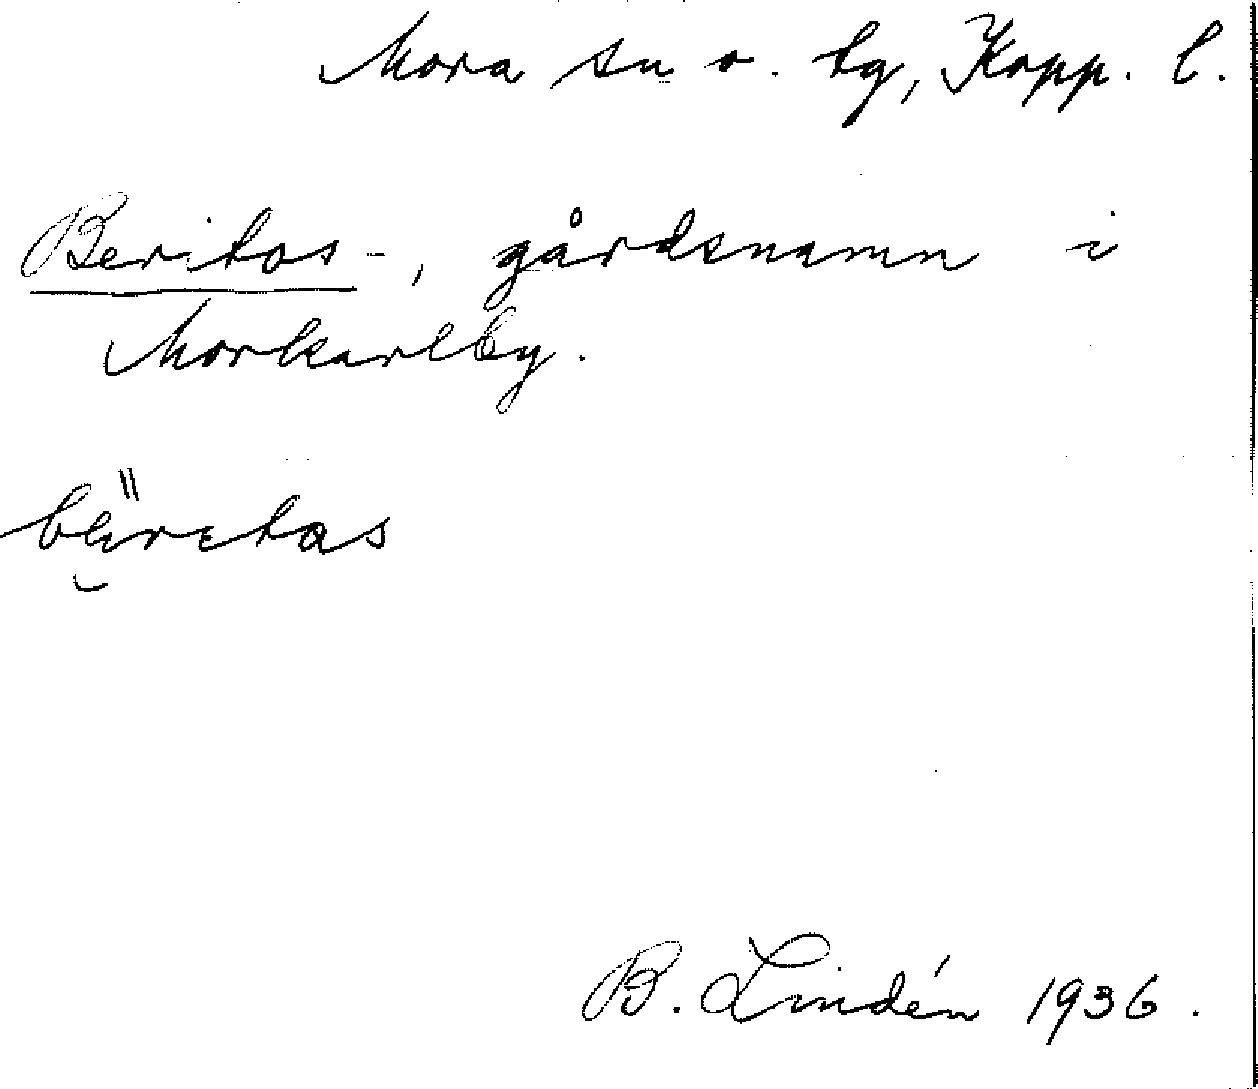 Mora sn o. by, Kopp. l.
Beritos-, gårdsnamn i
Morkarlby.
B. Lindén 1936.